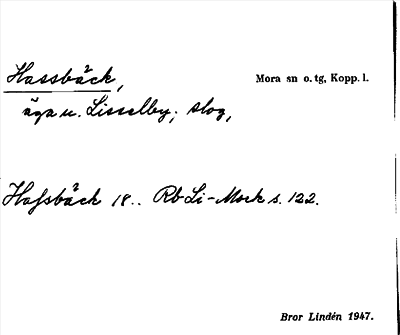 Hassbäck,
Mora sn o. tg, Kopp. l.
äga u. Lisselby; slog,
Hafsbäck 18.. Rb Li-Mork s. 122.
Bror Lindén 1947.